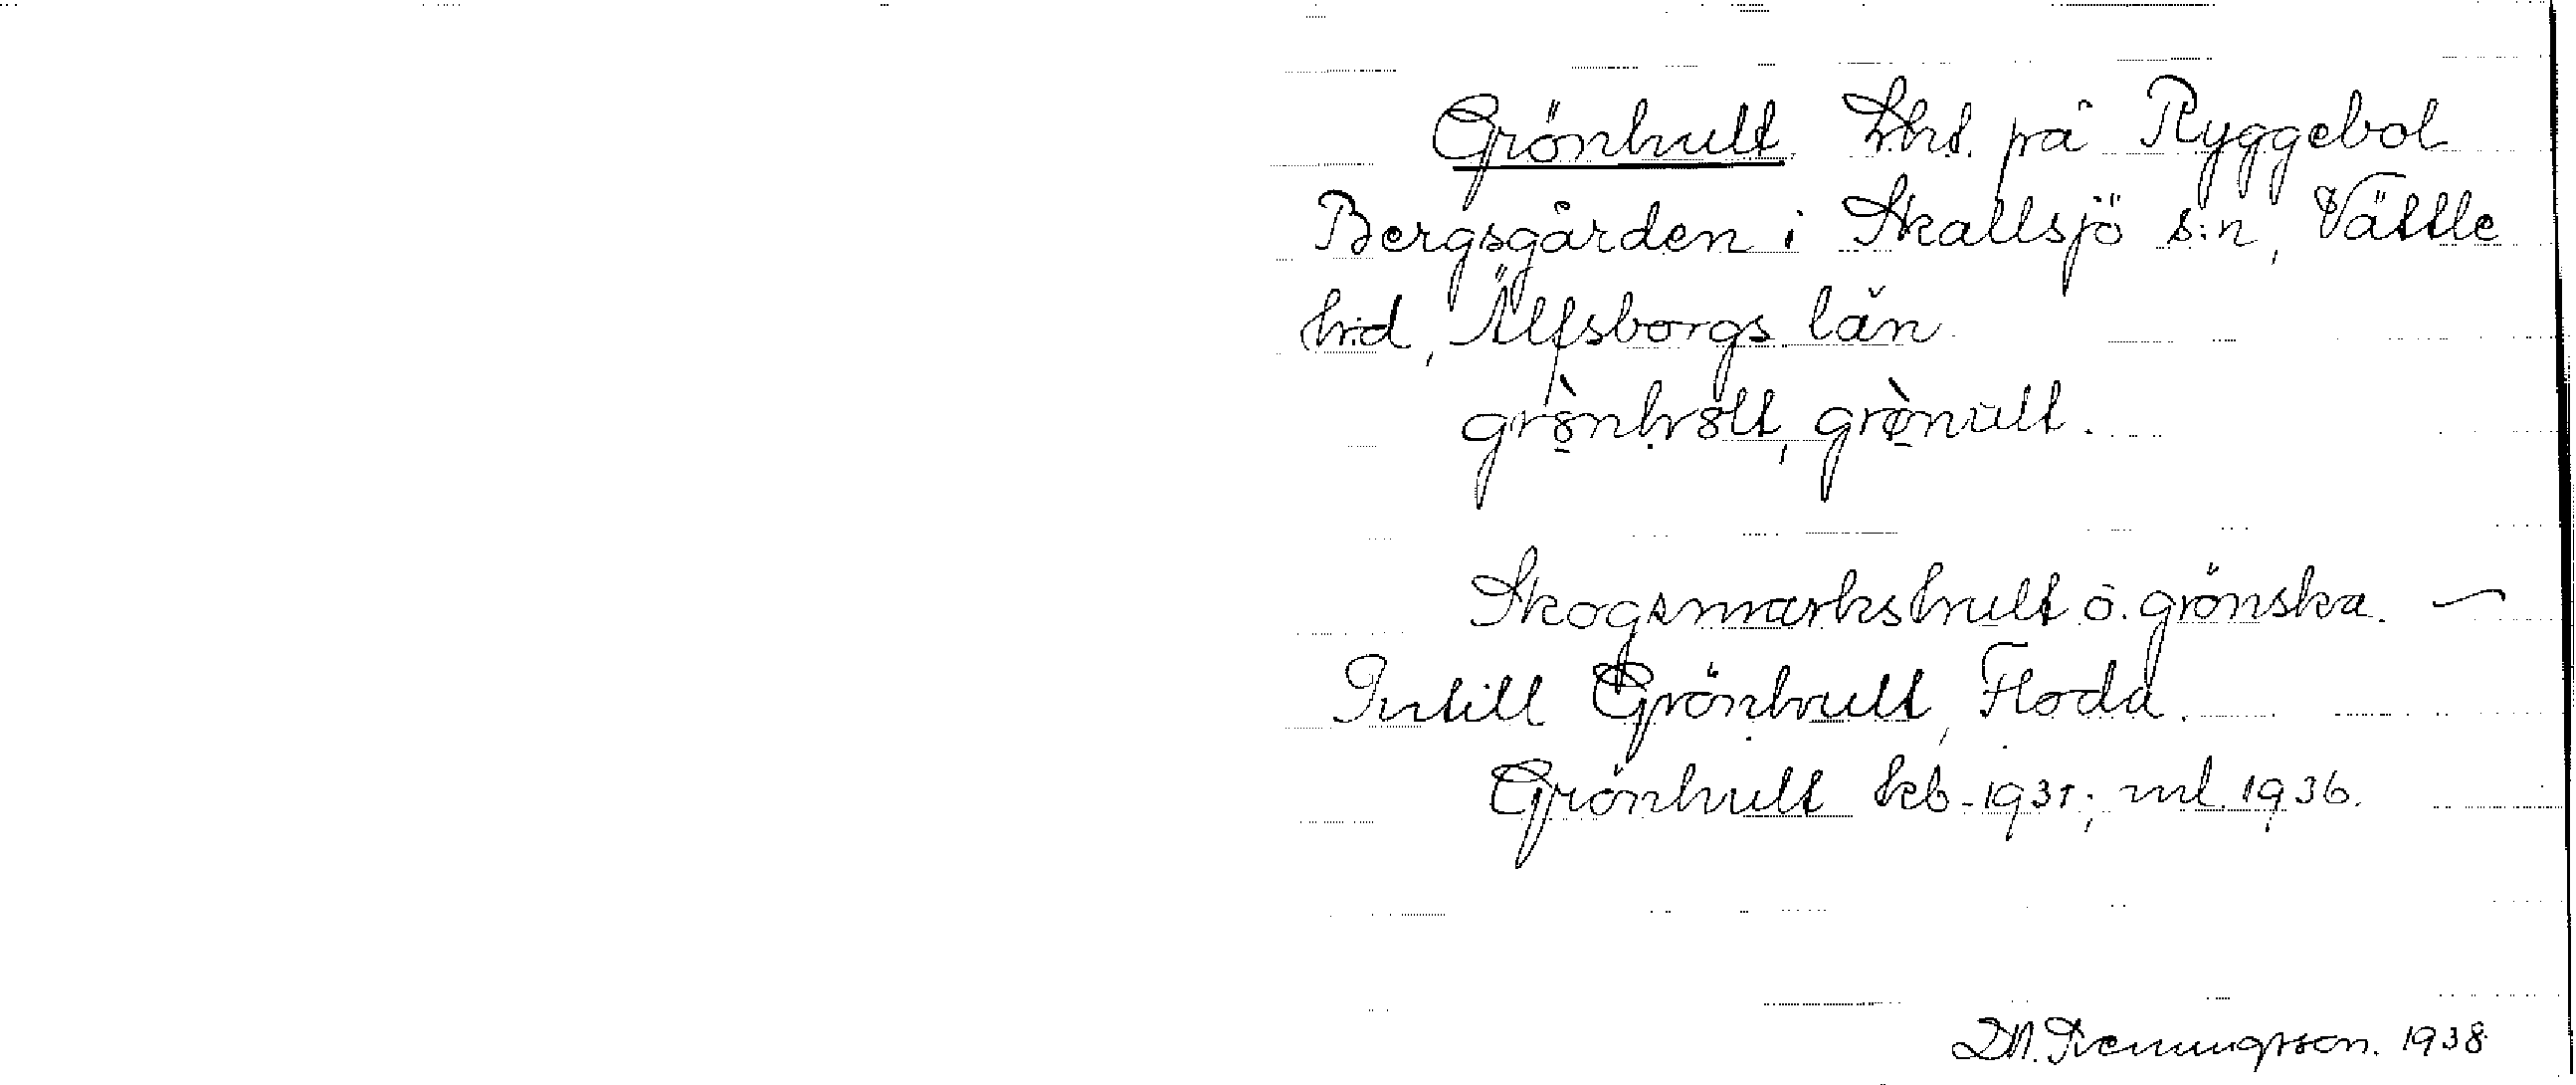 Grönhult. Lht. på Ryggebol
Bergsgården i Skallsjö s:n, Vättle
hrd, Älfsborgs län.
grö̀nhult, grø̀nult.
Skogsmarkshult o. grönska. —
Intill Grönhult, Floda.
Grönhult kb. 1931; ml. 1936.
1938